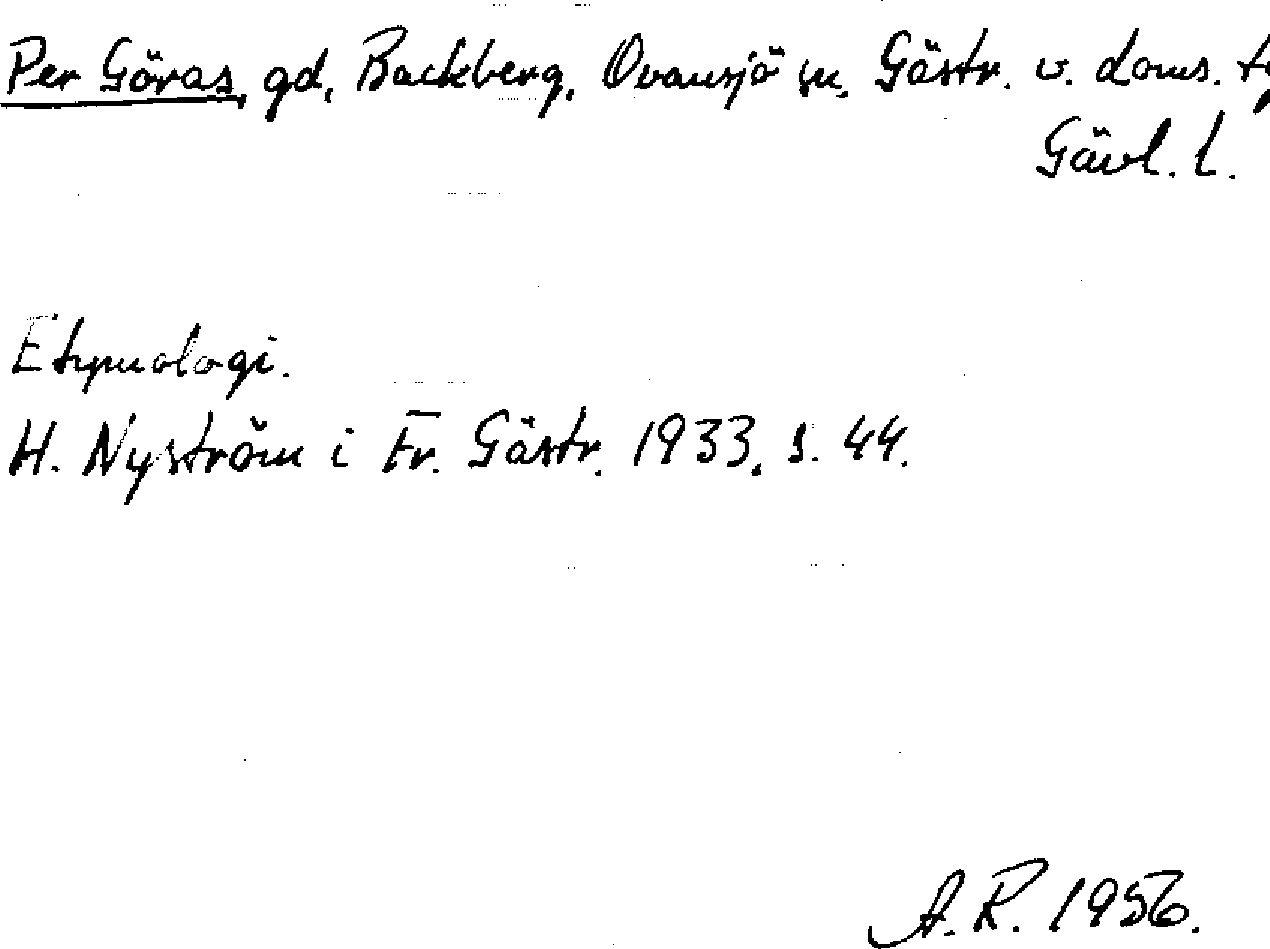 Per Göras, gd, Backberg, Ovansjö sn, Gästr. v. doms. tg
Gävl. l.
Etymologi.
H. Nyström i Fr. Gästr. 1933, s. 44.
A. R. 1956.